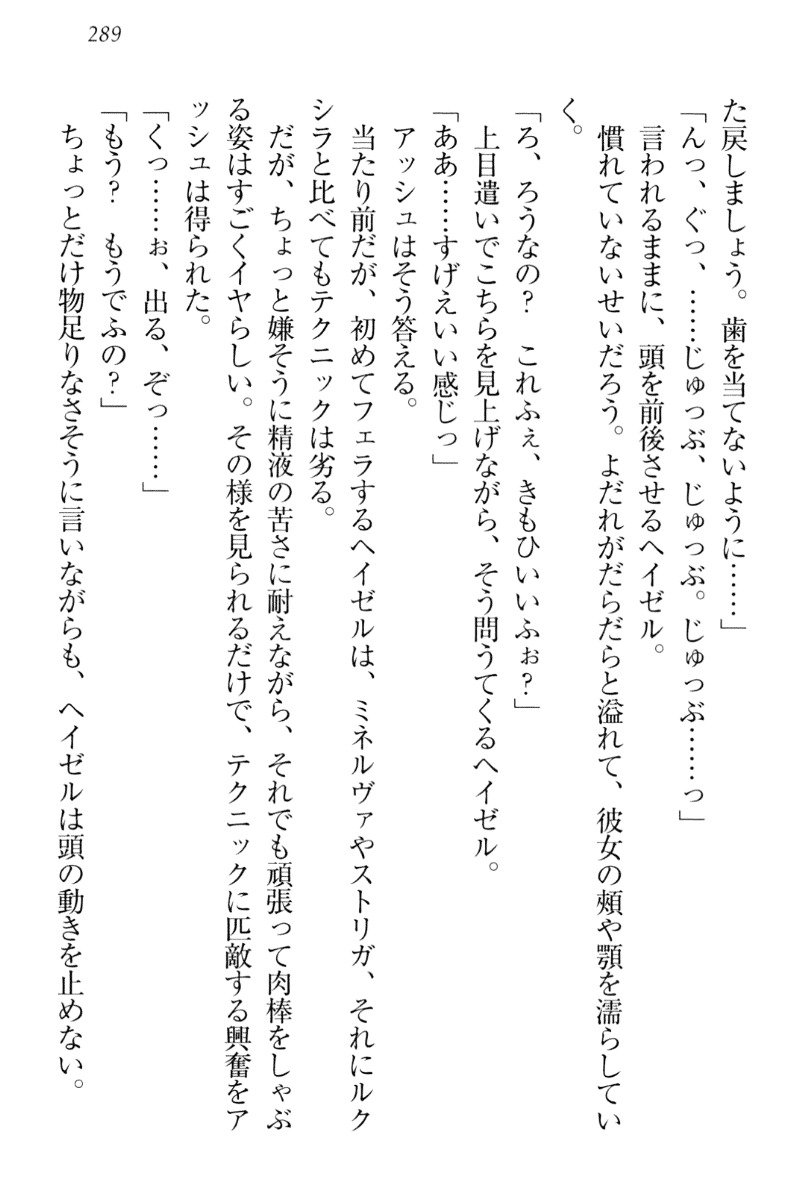 289
た戻しましょう。歯を当てないように……」
「んっ、ぐっ、……じゅっぶ、じゅっぶ。じゅっぶ……っ」
言われるままに、頭を前後させるヘイゼル。
慣れていないせいだろう。よだれがだらだらと溢れて、彼女の頬や顎を濡らしてい
く。
「ろ、ろうなの？　これふぇ、きもひいいふぉ？」
上目遣いでこちらを見上げながら、そう問うてくるヘイゼル。
「ああ……すげえいい感じっ」
アッシュはそう答える。
当たり前だが、初めてフェラするヘイゼルは、ミネルヴァやストリガ、それにルク
シラと比べてもテクニックは劣る。
だが、ちょっと嫌そうに精液の苦さに耐えながら、それでも頑張って肉棒をしゃぶ
る姿はすごくイヤらしい。その様を見られるだけで、テクニックに匹敵する興奮をア
ッシュは得られた。
「くっ……ぉ、出る、ぞっ……」
「もう？　もうでふの？」
ちょっとだけ物足りなさそうに言いながらも、ヘイゼルは頭の動きを止めない。